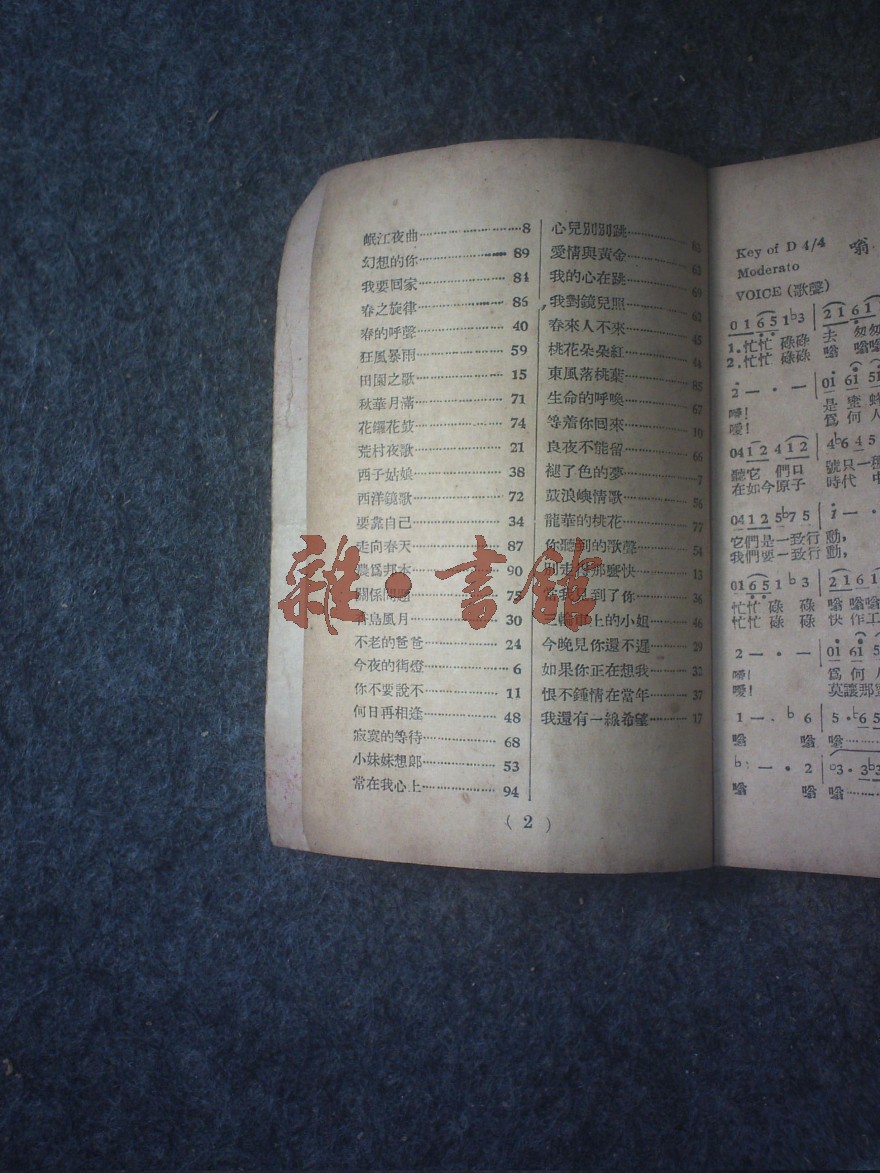 岷江夜曲……8
幻想的你……89
我要回家……84
春之旋律……86
春的呼聲……40
狂風暴雨……59
田園之歌……15
秋華月滿……71
花鑼花鼓……74
荒村夜歌……21
西子姑娘……38
西洋鏡歌……72
要靠自己……34
走向春天……87
農爲邦本……90
關係問題……75
青島風月……30
不老的爸爸……24
今夜的街燈……6
你不要說不……11
何日再相逢……48
寂寞的等待……68
小妹妹想郎……53
常在我心上……94
心兒別別跳
愛情與黃金……63
我的心在跳……69
我對鏡兒照……62
春來人不來……45
桃花朵朵紅……44
東風落桃葉……85
生命的呼喚……67
等着你回來……10
良夜不能留……66
褪了色的夢……7
鼓浪嶼情歌……56
龍華的桃花……77
你聽到的歌聲……54
別走得那麼快……13
當我見到了你……36
三輪車上的小姐……46
今晚見你還不遲……29
如果你正在想我……32
恨不鍾情在當年……37
我還有一線希望……17
( 2 )
雜·書館
嗡
Key of D 4/4
Moderato
VOICE (歌聲)
0 1 6 5 1 ♭3 | 2 1 6 1
1.忙忙 碌碌 去 匆匆
2.忙忙 碌碌 嗡 嗡嗡
2 — · — | 0i 6i 5i
嗯! 是 蜜 蜂
嗳! 爲 何 人
041 2 4 1 2 | 4♭6 4 5
聽它 們口 號只一種
在如今原子 時代 中
041 2 5♭7 5 | i — ·
它們是一致行 動,
我們要一致行 動,
016 5 1 ♭3 | 2 1 6 1
忙忙 碌 碌 嗡 嗡嗡
忙忙 碌 碌 快 作工
2 — · — | 0i 6i 5
嗯! 爲 何 人
嗳! 莫讓那
1 — . ♭6 | 5 · ♭6 5
嗡 嗡 嗡
— · 2 | 3 · 3♭3
嗡 嗡 嗡……